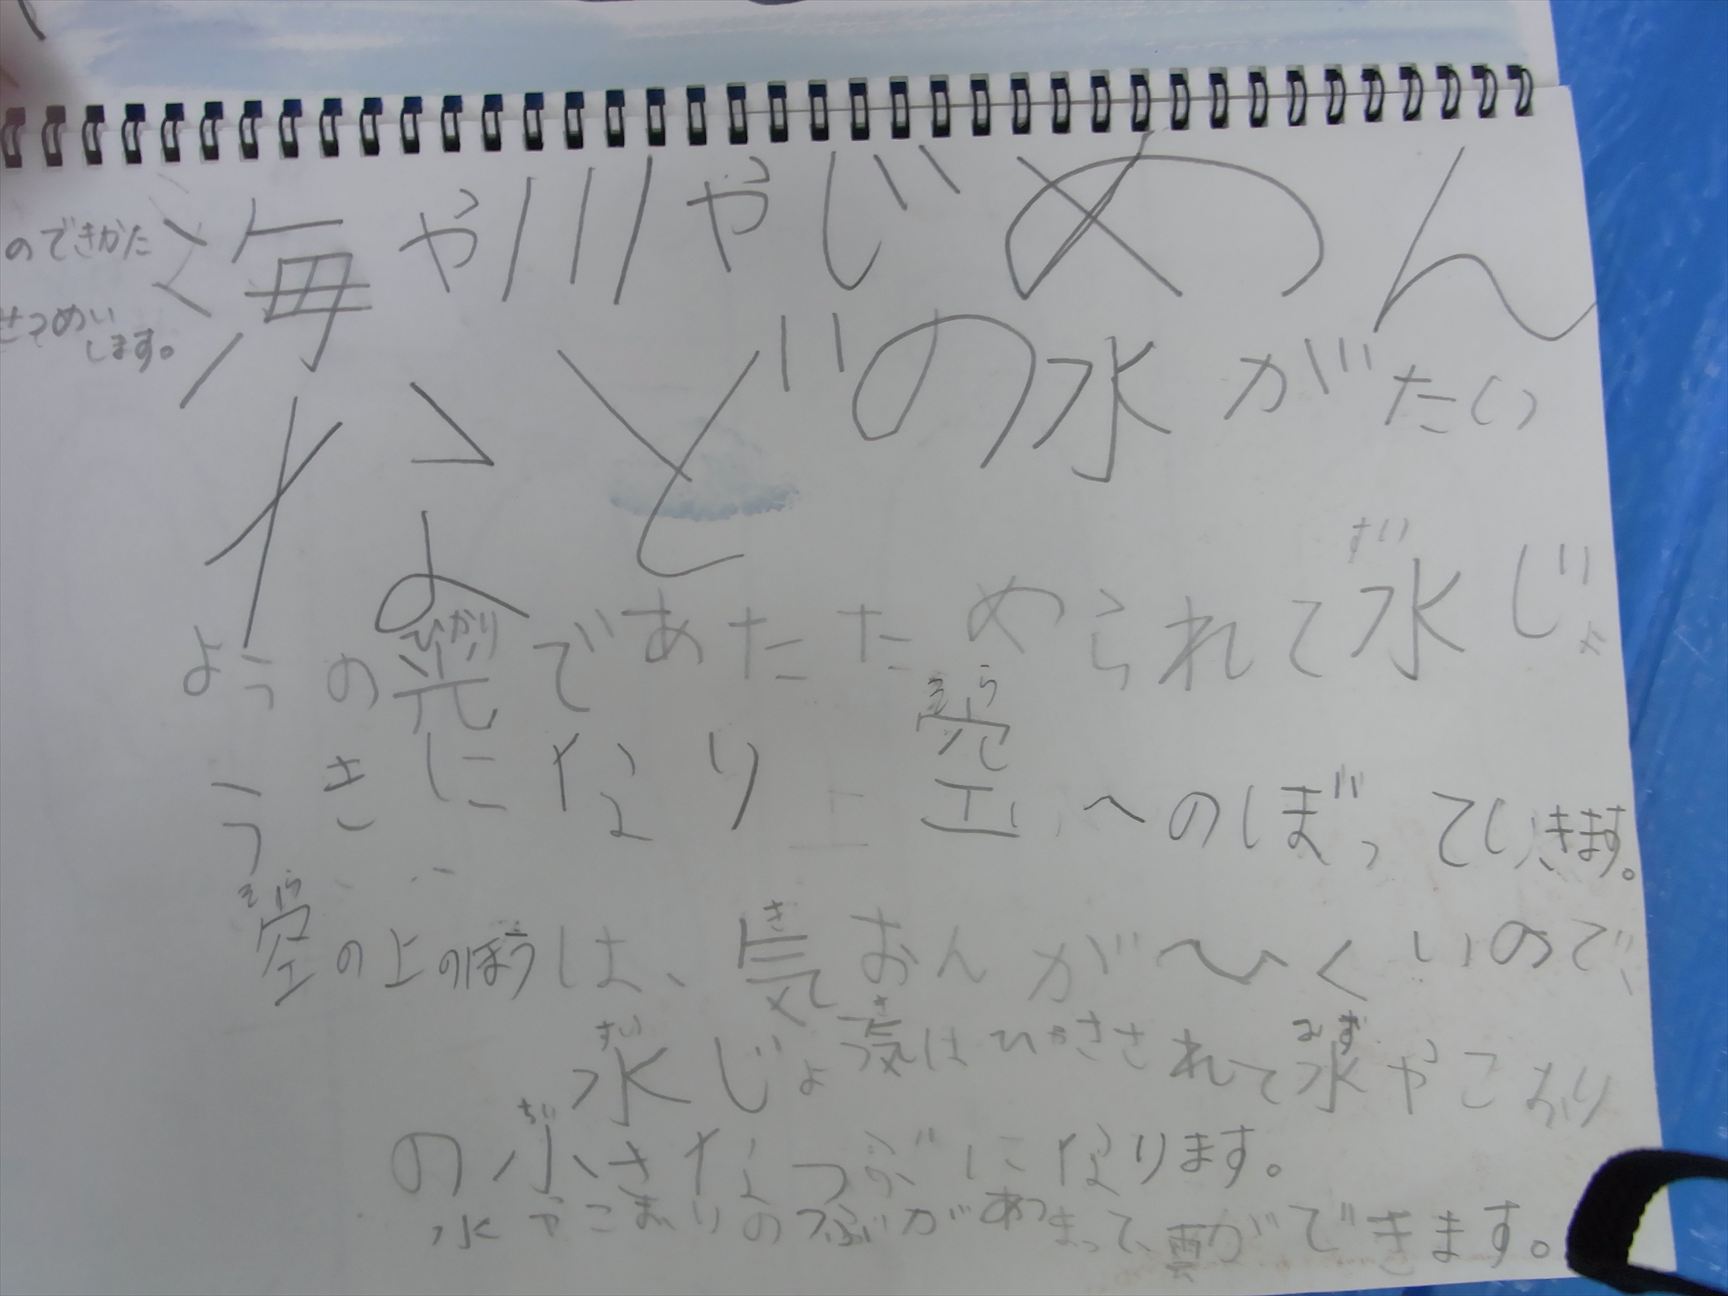 のできかた
せつめい
します。
海や川やじめん
などの水がたい
ようの光であたためられて水じょ
うきになり空へのぼっていきます。
空の上のほうは、気おんがひくいので、
水じょ気はひやされて水やこおり
の小さなつぶになります。
水やこおりのつぶがあつまって、雲ができます。
ひかり
ずい
そら
そら
き
ずい
き
みず
ちい